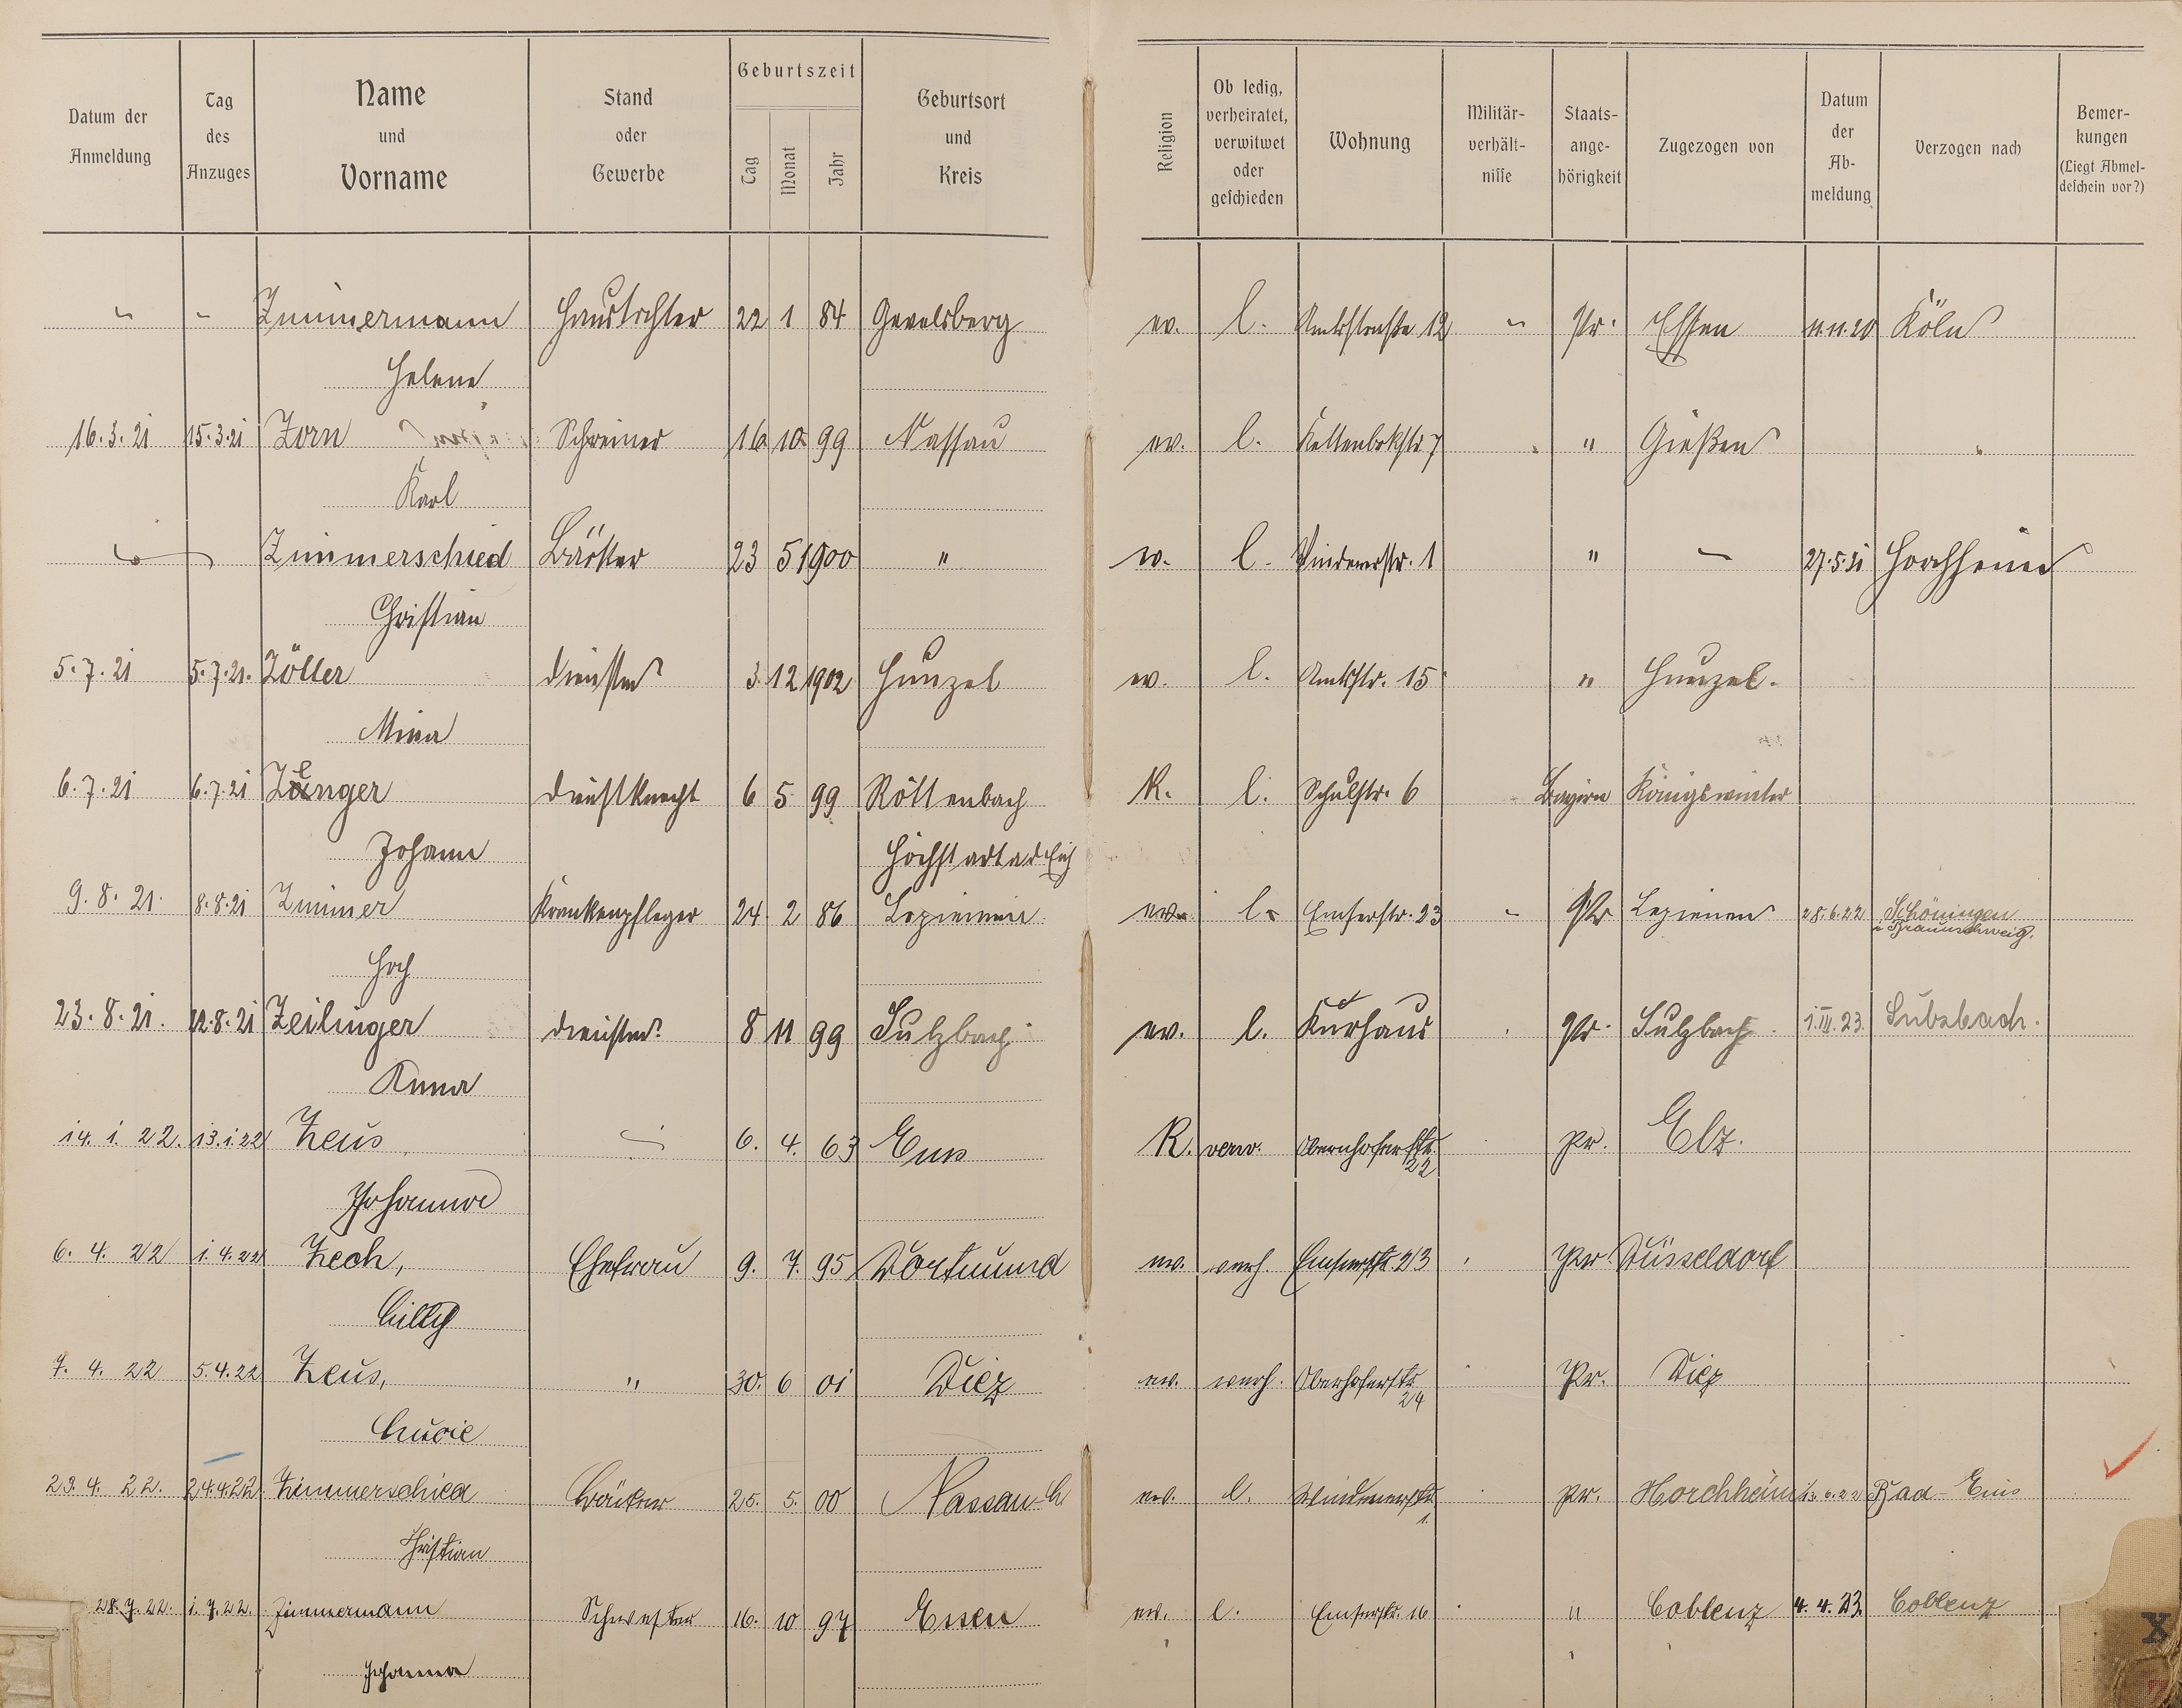 Datum der Anmeldung
Tag des Anzuges
Name und Vorname
Stand oder Gewerbe
Geburtszeit
Tag Monat Jahr
Geburtsort und Kreis
Religion
Ob ledig, verheiratet, verwitwet oder geschieden
Wohnung
Militär-verhält-nisse
Staats-ange-hörigkeit
Zugezogen von
Datum der Ab-meldung
Verzogen nach
Bemer-kungen (Liegt Abmel-deschein vor?)
" " Zimmermann Haustochter 22 1 84 Gevelsberg ev. l. Amtsstraße 12 " Pr. Essen 11.11.20 Köln
Helene
16.3.21 15.3.21 Zorn Schreiner 16 10 99 Nassau ev. l. Kaltenbchstr 7 " Gießen
Karl
Zimmerschied Bäcker 23 5 1900 " ev. l. Windenerstr. 1 " 27.5.21 Horchheim
Christian
5.7.21 5.7.21. Zöller Dienstm 3. 12 1902 Hunzel ev. l. Amtsstr. 15 " Hunzel.
Mina
6.7.21 6.7.21 Zenger Dienstknecht 6 5 99 Röttenbach K. l. Schulstr. 6 Bayern Königswinter
Johann
Höchstadt a d Eich
9.8.21. 8.8.21 Zimmer Krankenpfleger 24 2 86 Lepienen ev. l. Emserstr. 23 " Pr Lepienen 28.6.22 Schöningen
i Braunschweig.
23.8.21. 22.8.21 Zeilinger Dienstm. 8 11 99 Sulzbach ev. l. Kurhaus Pr. Sulzbach 1.III.23. Sulzbach.
Anna
14.1.22. 13.1.22 Zeus 6. 4. 63 Ems K. verw. Obernhoferstr. 22 Pr. Elz.
Johanna
6. 4. 22 1.4.22 Zech, Ehefrau 9. 7. 95 Dortmund ev. verh. Emserstr 23 Pr Düsseldorf
Cilly
7. 4. 22 5.4.22 Zeus, " 30. 6 01 Diez ev. verh. Oberhoferstr 24 Pr. Diez
Luise
23. 4. 22. 24.4.22 Zimmerschied Bäcker 25. 5. 00 Nassau ev. l. Windenerstr 1. Pr. Horchheim 13.6.22 Bad-Ems
Christian
28.7.22. 1.7.22. Zimmermann Schwester 16. 10 97 Essen ev. l. Emserstr. 16 " Coblenz 4.4.23. Coblenz
Johanna
X